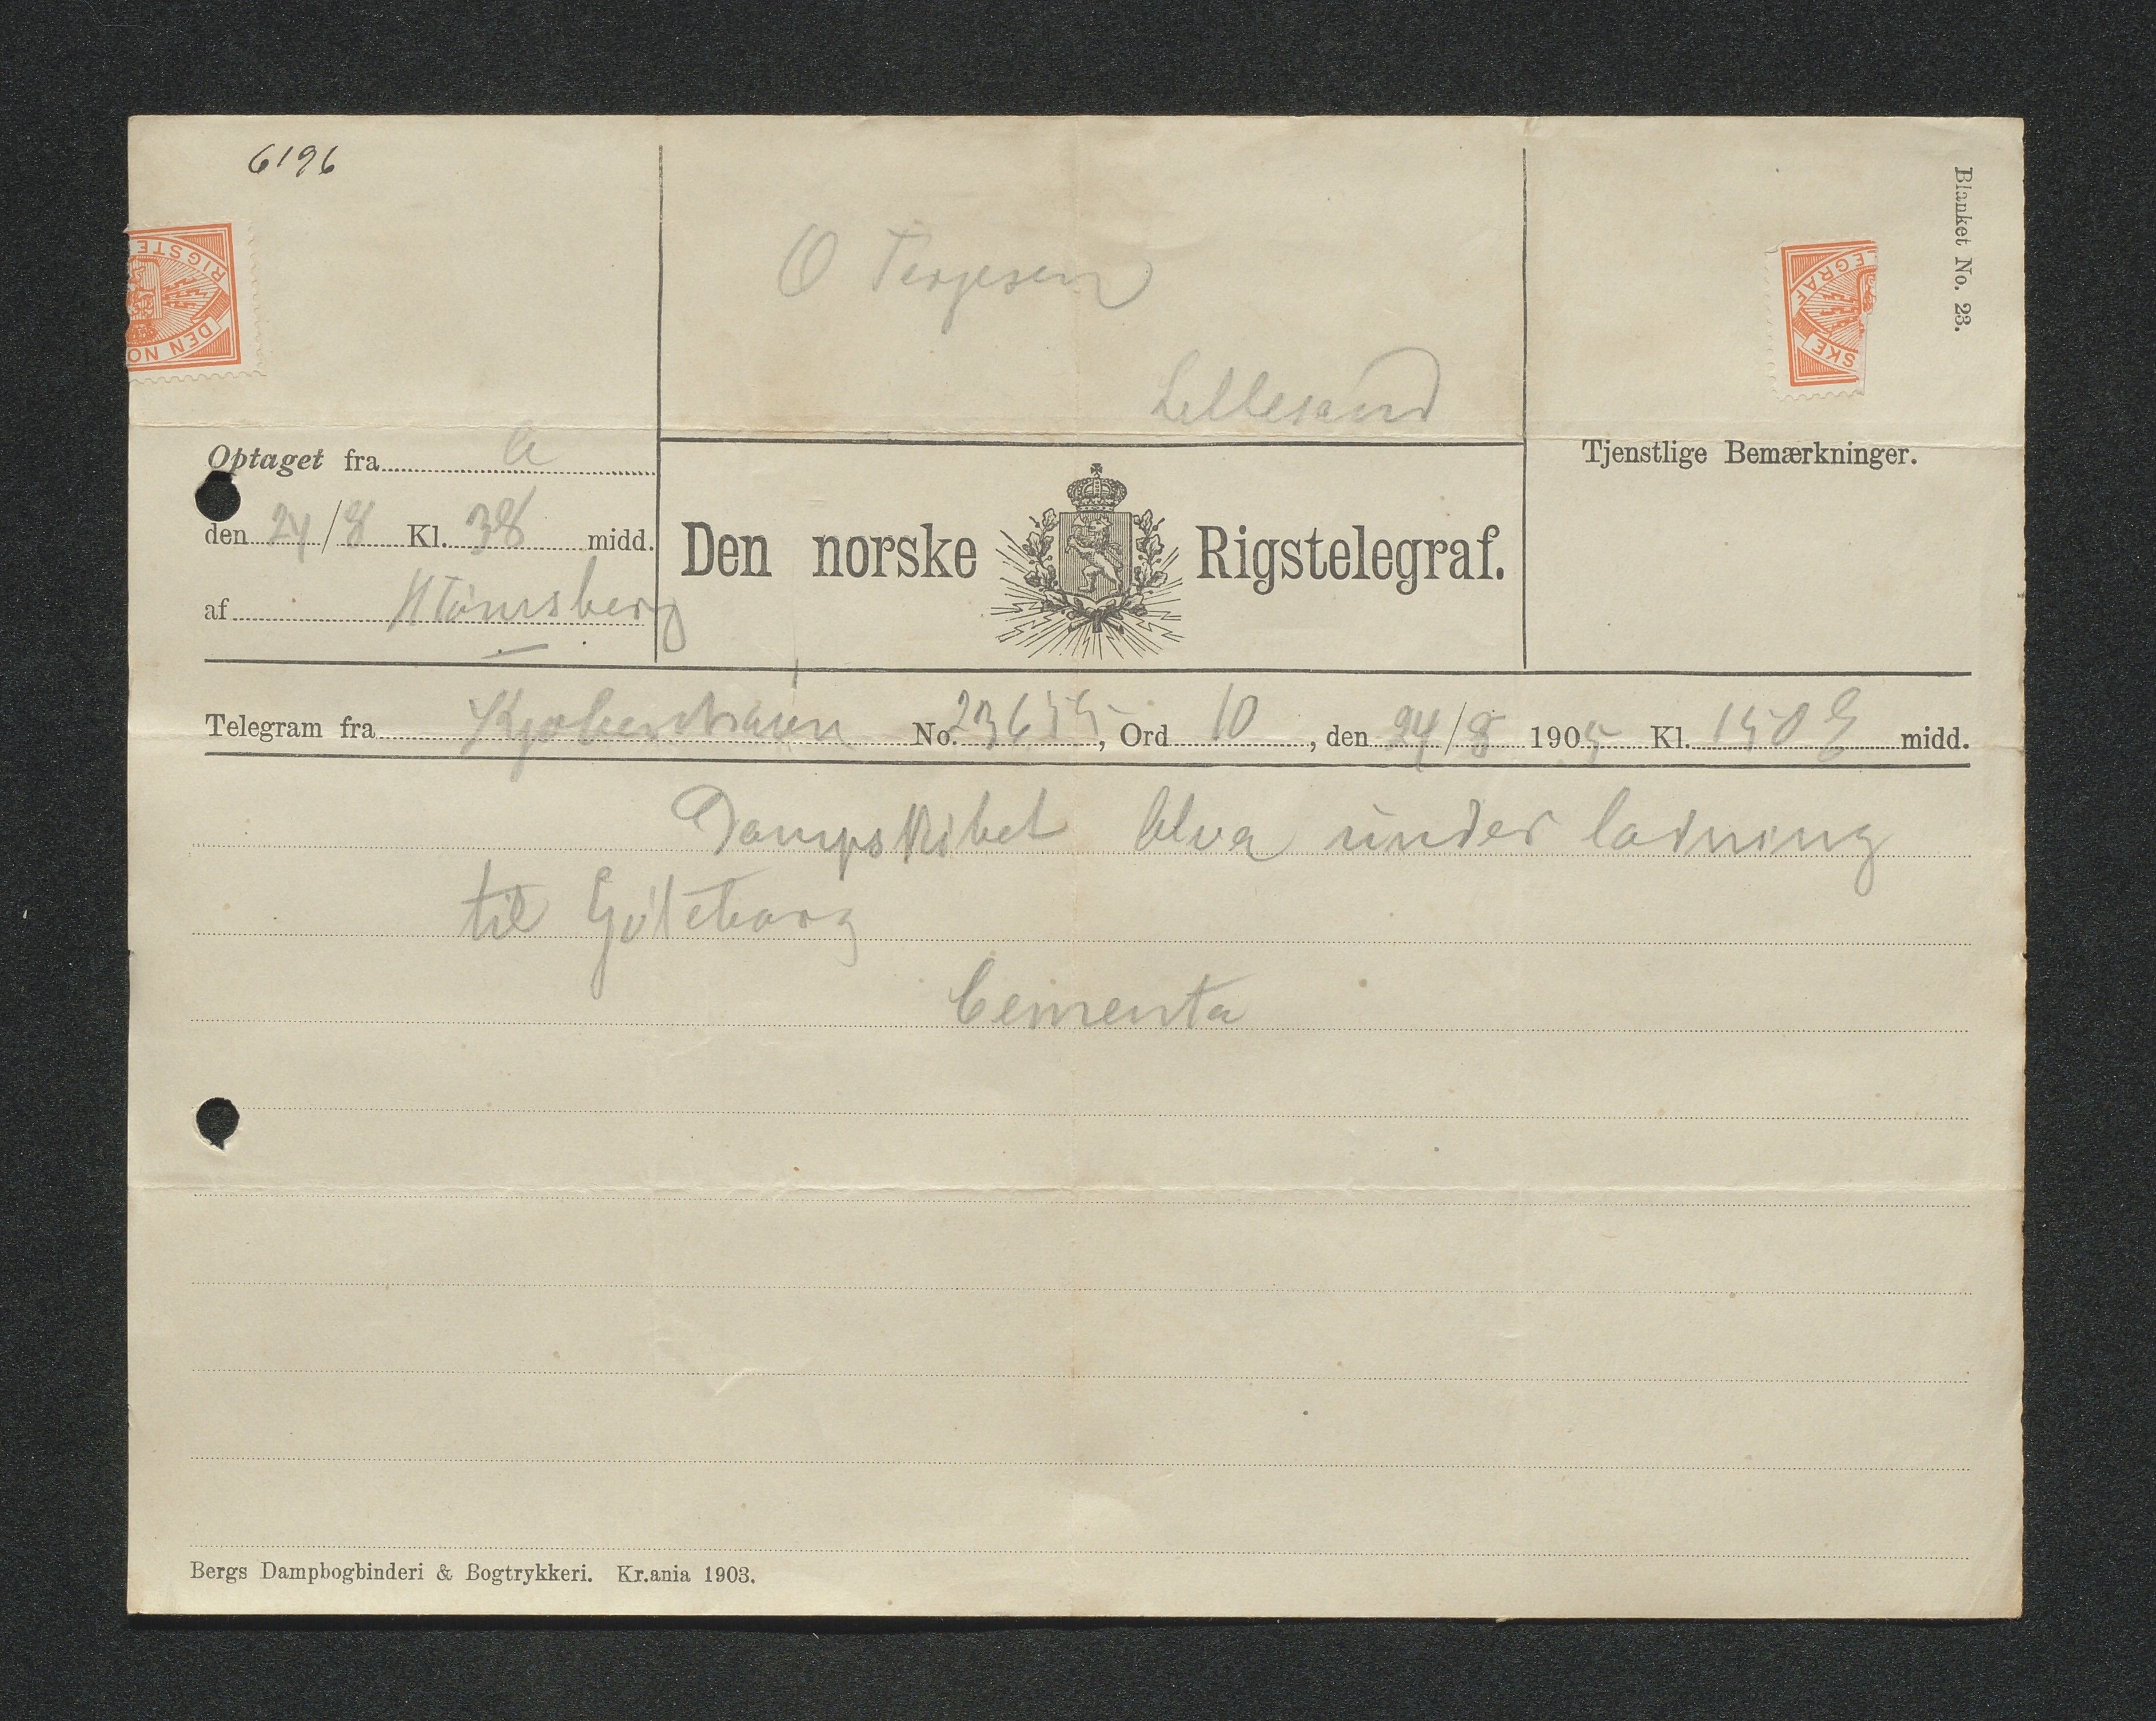 6196
Blanket No. 23.
RIGSTE
DEN NO
LEGRAF
SKE
O Terjesen
Lillesand
Optaget fra A
den 24/8 Kl. 38 midd.
af
Tjenstlige Bemærkninger.
Den norske Rigstelegraf.
Telegram fra Kjøbenhavn No. 23655, Ord 10, den 24/8 1905 Kl. 150 E midd.
Dampskibet Alva under ladning
til Gøteborg
Cementa
Bergs Dampbogbinderi & Bogtrykkeri. Kr.ania 1903.